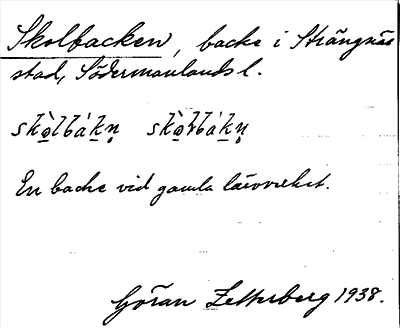 Skolbacken, backe i Strängnäs
stad, Södermanlands l.
skòlbákn̥ skòɫbákn̥
En backe vid gamla läroverket.
Göran Zetterberg 1938.